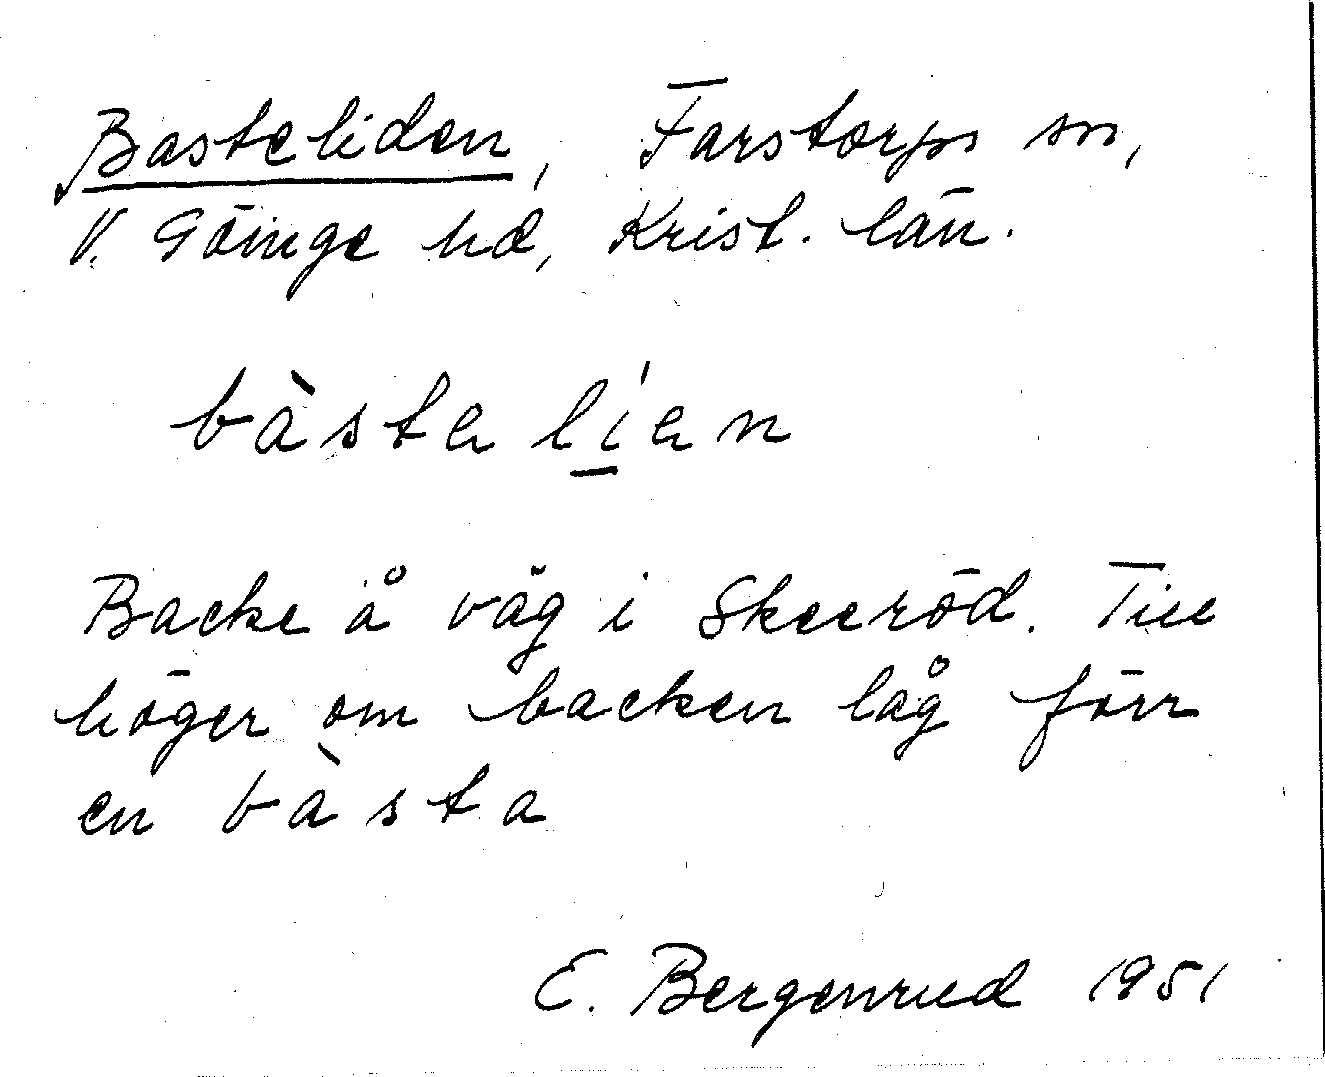 Basteliden, Farstorps sn,
V. Göinge hd, Krist. län.
bàstα líαn
Backe å väg i Skeeröd. Till
höger om backen låg förr
en bàsta
E. Bergenrud 1951